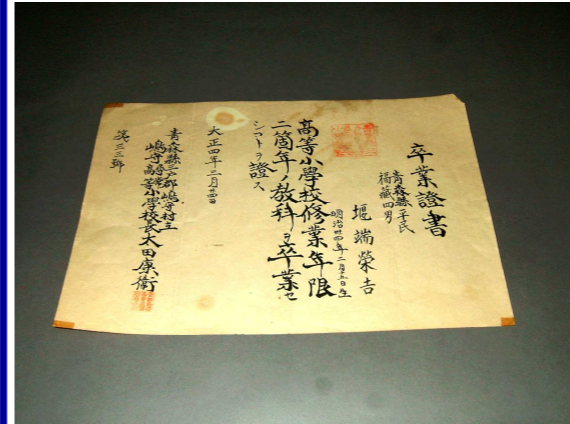 卒業證書
青森縣平民
福藏四男
堰端榮吉
明治卅四年二月十五日生
高等小學校修業年限
二箇年ノ教科ヲ卒業セ
シコトヲ證ス
大正四年三月廿四日
青森縣三戸郡嶋守村立
嶋守尋常高等小學校長太田康衛
第三三號